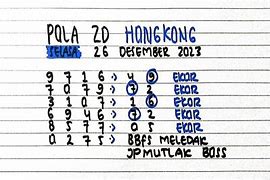 POLA 2D HONGKONG
SELASA 26 DESEMBER 2023
9 7 1 6 → 4 9 EKOR
7 0 7 9 → 7 2 EKOR
3 1 0 7 → 1 6 EKOR
6 9 4 6 → 7 2 EKOR
8 5 7 7 → 0 5 EKOR
0 2 7 5 → BBFS MELEDAK
JP MUTLAK BOSS